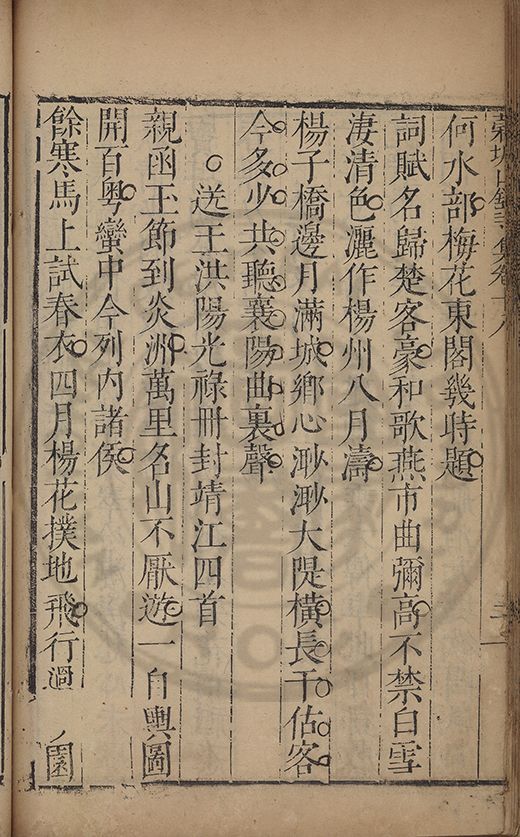 何水部梅花東閣幾時題
詞賦名歸楚客豪和歌燕市曲彌高不禁白雪
淒清色灑作楊州八月濤
楊子橋邊月滿城鄉心渺渺大隄橫長干估客
今多少共聽襄陽曲裏聲
送王洪陽光祿冊封靖江四首
親函玉節到炎洲萬里名山不厭遊一自輿圖
開百粵蠻中今列內諸侯
餘寒馬上試春衣四月楊花撲地飛行過 園